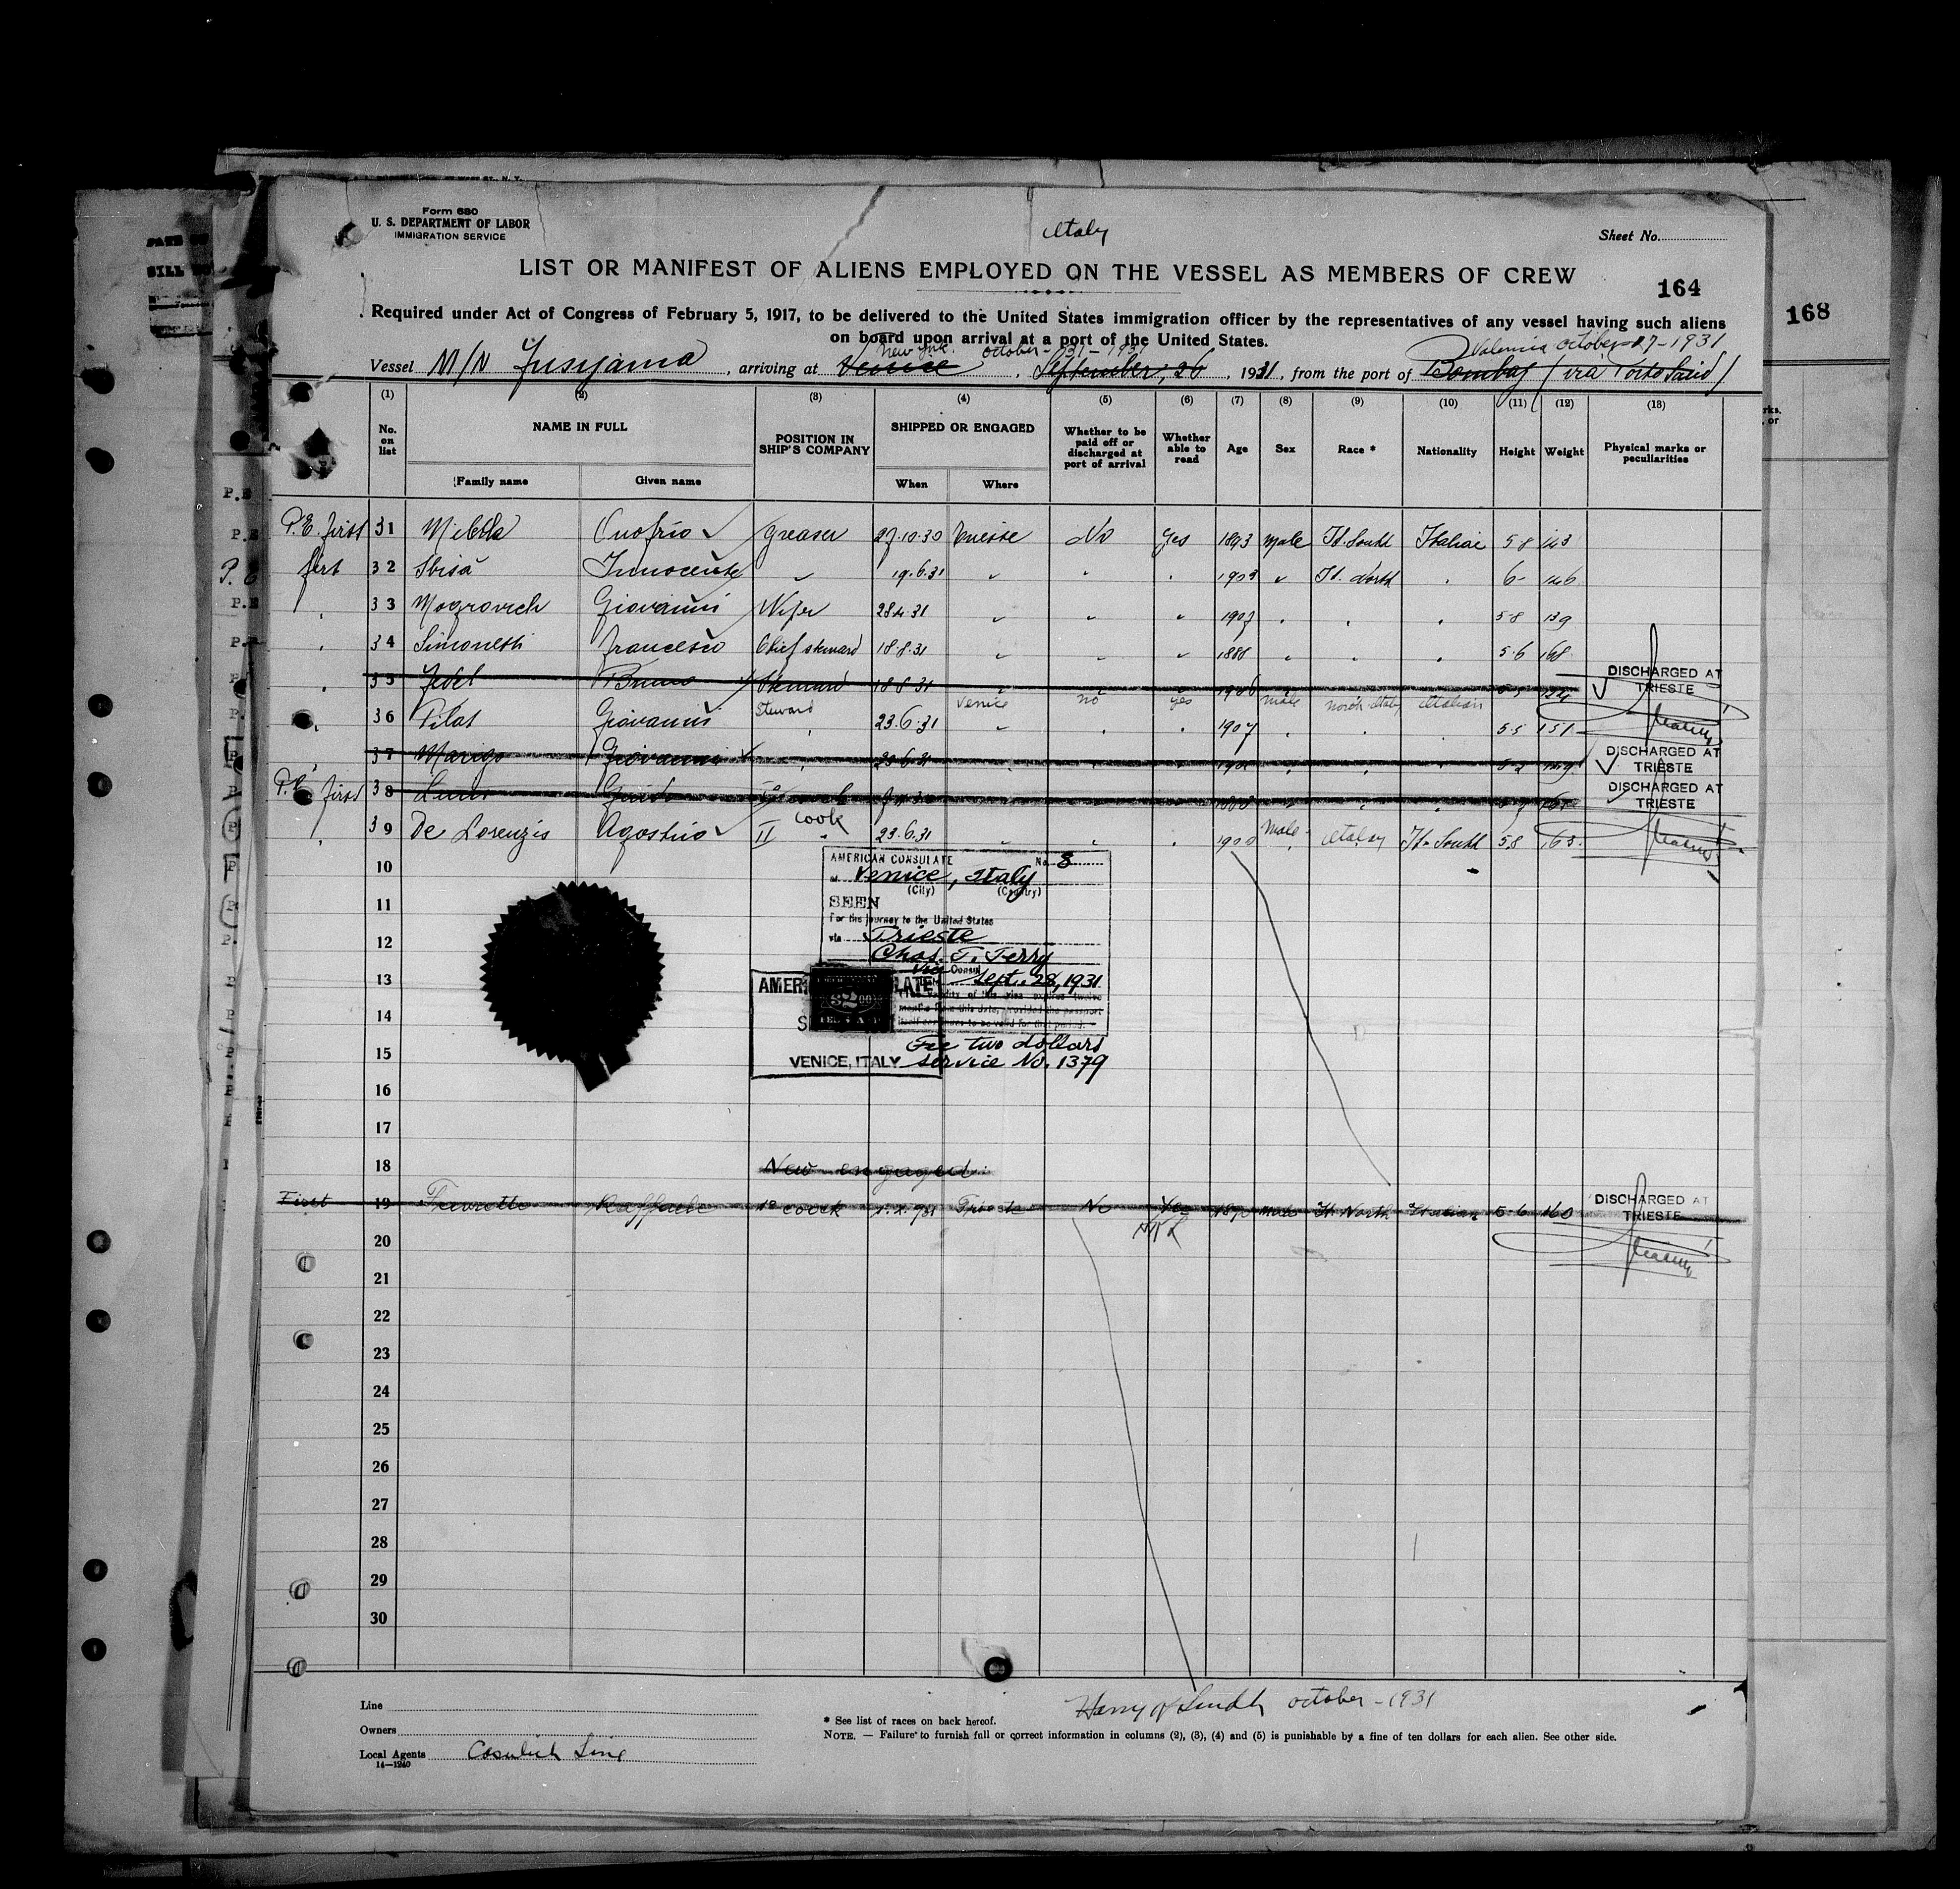 Form 680
U. S. DEPARTMENT OF LABOR
IMMIGRATION SERVICE
Italy
Sheet No.
LIST OR MANIFEST OF ALIENS EMPLOYED ON THE VESSEL AS MEMBERS OF CREW
164
168
Required under Act of Congress of February 5, 1917, to be delivered to the United States immigration officer by the representatives of any vessel having such aliens
on board upon arrival at a port of the United States.
New York. October - 31 - 1931 Valencia October 17 - 1931
Vessel M/N Fusijama, arriving at Venice, September, 26, 1931, from the port of Bombay (via Porto Said)
(1) (2) (3) (4) (5) (6) (7) (8) (9) (10) (11) (12) (13)
No. on list NAME IN FULL POSITION IN SHIP'S COMPANY SHIPPED OR ENGAGED Whether to be paid off or discharged at port of arrival Whether able to read Age Sex Race * Nationality Height Weight Physical marks or peculiarities
Family name Given name When Where
P.E. first 31 Onofrio greaser 27.10.30 No Yes 1893 Male It. South 5 8 143
first 32 Ibisà Innocente 19.6.31 1903 It. North 6- 146
33 Mogrovich Giovanni Wiper 28 4.31 1907 5 8 139
34 Simonetti Francesco Chief steward 18.8.31 1888 5.6 168
35 Bruno Steward 18 8.31 DISCHARGED AT TRIESTE
Steward Venice no yes male north Italy Italian
36 Pilat Giovanni 23.6.31 1907 5 5 151
37 Marigo Giovanni 23.6.31 DISCHARGED AT TRIESTE
P.E. first 38 Guido cook DISCHARGED AT TRIESTE
39 De Lorenzis Agostino II cook 23.6.31 1900 Male Italy It. South 5 8 163
10
11
12
13
14
15
16
17
18
AMERICAN CONSULATE No. 8
Venice, Italy
(City) (Country)
SEEN
For the journey to the United States
via Trieste
Chas. T. Terry
Vice Consul
Sept. 28, 1931
The validity of this visa expires twelve
months from this date, provided the passport
itself continues to be valid for that period.
Fee two dollars
Service No. 1379
VENICE, ITALY
New engaged:
First 19 Raffaele 1º coock 1.X.931 Trieste No Yes Male It. North Italian 5-6 160 DISCHARGED AT TRIESTE
20
21
22
23
24
25
26
27
28
29
30
October - 1931
Line
Owners
Local Agents Cosulich Line
14—1240
* See list of races on back hereof.
NOTE. — Failure to furnish full or correct information in columns (2), (3), (4) and (5) is punishable by a fine of ten dollars for each alien. See other side.